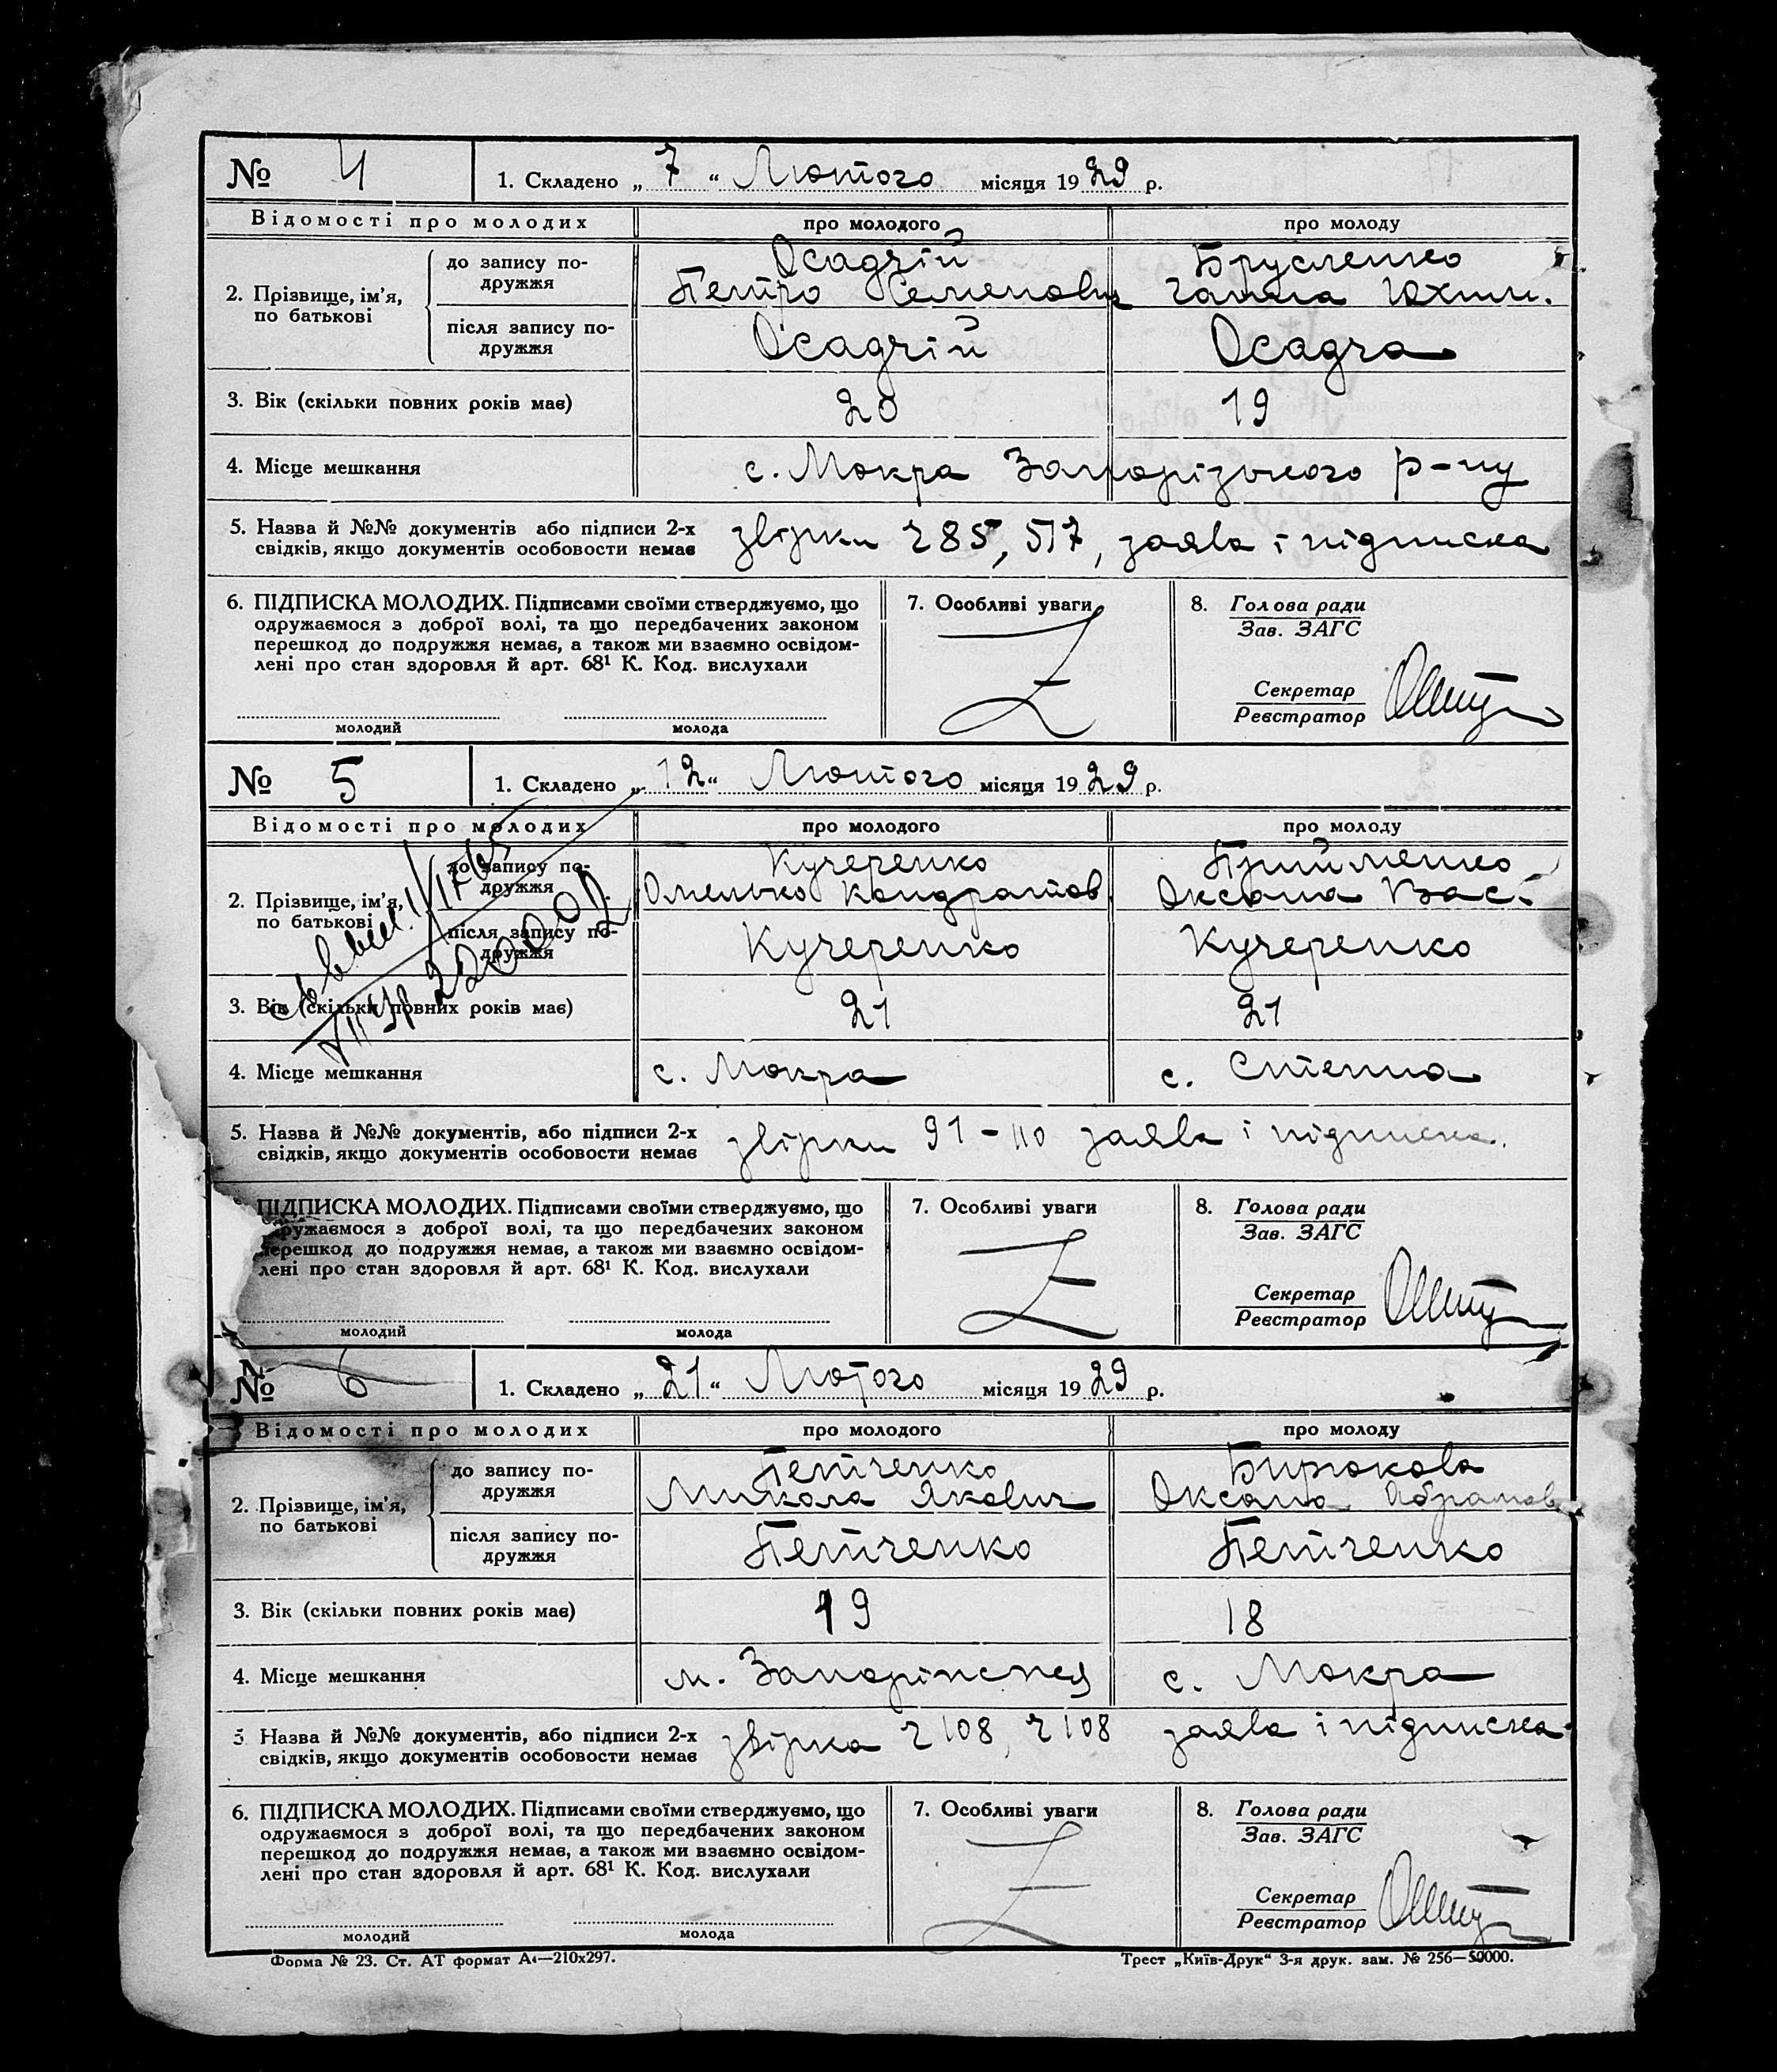 № 4 1. Складено „ 7 “ Лютого місяця 1929 р.
Відомості про молодих про молодого про молоду
2. Прізвище, ім’я, по батькові
до запису по-
дружжя
Осадчій Брусленко
Петро Семенович Ганна Юхим.
після запису по-
дружжя
Осадчій Осадча
3. Вік (скільки повних років має) 20 19
4. Місце мешкання с. Мокра Запорізького р-ну
5. Назва й №№ документів або підписи 2-х
свідків, якщо документів особовости немає
звірки ч 85, 517, заява і підписка
6. ПІДПИСКА МОЛОДИХ. Підписами своїми стверджуємо, що
одружаємося з доброї волі, та що передбачених законом
перешкод до подружжя немає, а також ми взаємно освідом-
лені про стан здоровля й арт. 68¹ К. Код. вислухали
молодий молода
7. Особливі уваги
8. Голова ради
Зав. ЗАГС
Секретар
Реєстратор
№ 5 1. Складено „ 12 “ Лютого місяця 1929 р.
Відомості про молодих про молодого про молоду
2. Прізвище, ім’я,
по батькові
до запису по-
дружжя
Кучеренко Прийменко
Омелько Кондратов. Оксана Вас.
після запису по-
дружжя
Кучеренко Кучеренко
3. Вік (скільки повних років має) 21 21
4. Місце мешкання с. Мокра с. Степна
5. Назва й №№ документів, або підписи 2-х
свідків, якщо документів особовости немає
звірки 91-110 заява і підписка.
ПІДПИСКА МОЛОДИХ. Підписами своїми стверджуємо, що
одружаємося з доброї волі, та що передбачених законом
перешкод до подружжя немає, а також ми взаємно освідом-
лені про стан здоровля й арт. 68¹ К. Код. вислухали
молодий молода
7. Особливі уваги
8. Голова ради
Зав. ЗАГС
Секретар
Реєстратор
№ 6 1. Складено „ 21 “ Лютого місяця 1929 р.
Відомості про молодих про молодого про молоду
2. Прізвище, ім’я,
по батькові
до запису по-
дружжя
Петченко Бирюкова
Микола Якович Оксана Абрамов
після запису по-
дружжя
Петченко Петченко
3. Вік (скільки повних років має) 19 18
4. Місце мешкання м. Запоріжжя с. Мокра
5 Назва й №№ документів, або підписи 2-х
свідків, якщо документів особовости немає
звірка ч 108, ч 108 заява і підписка
6. ПІДПИСКА МОЛОДИХ. Підписами своїми стверджуємо, що
одружаємося з доброї волі, та що передбачених законом
перешкод до подружжя немає, а також ми взаємно освідом-
лені про стан здоровля й арт. 68¹ К. Код. вислухали
молодий молода
7. Особливі уваги
8. Голова ради
Зав. ЗАГС
Секретар
Реєстратор
Форма № 23. Ст. АТ формат А₄—210х297. Трест „Київ-Друк“ 3-я друк. зам. № 256—50000.